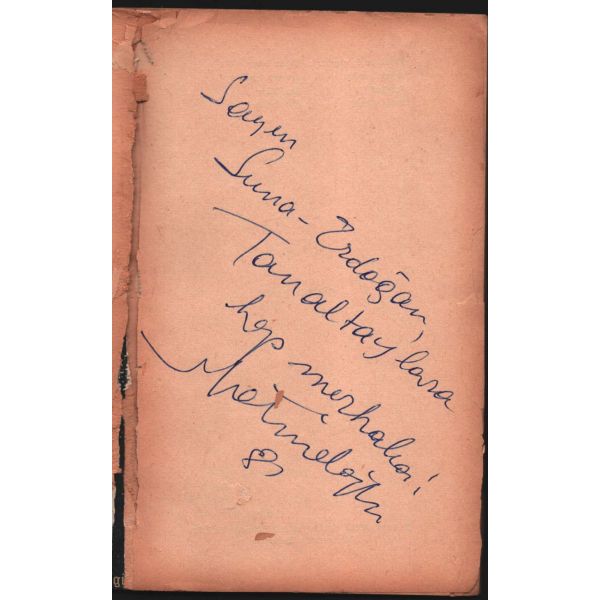 Sayın
Suna-Erdoğan,
Tanaltay'lara
hep merhaba!
Metin Eloğlu
gi